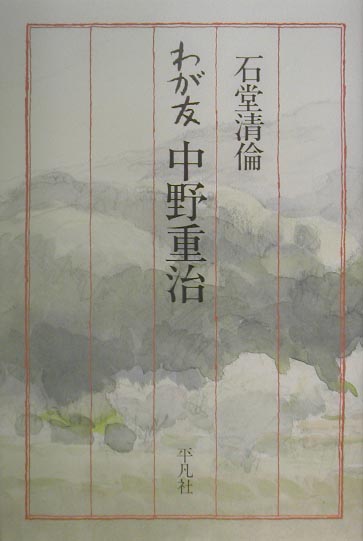 石堂清倫
わが友 中野重治
平凡社